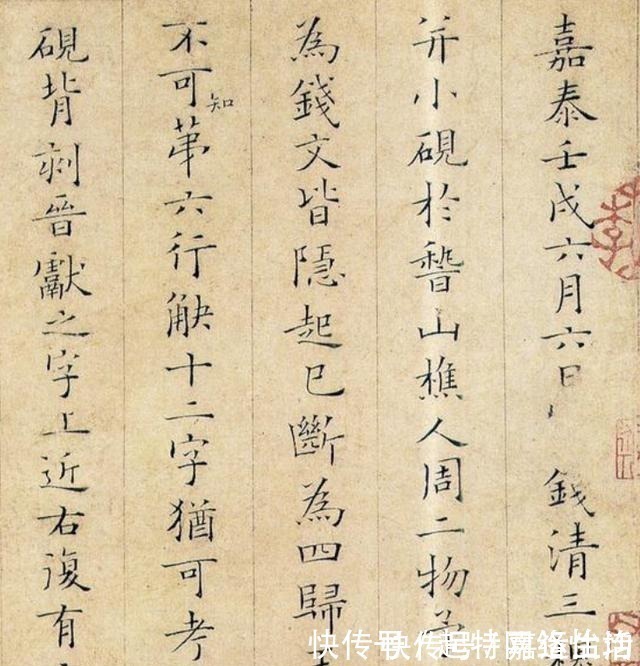 嘉泰壬戌六月六日 錢清三
并小硯於稽山樵人周二物
為錢文皆隱起已斷為四歸
不可知第六行缺十二字猶可考
硯背刻晉獻之字上近右復有
快传号